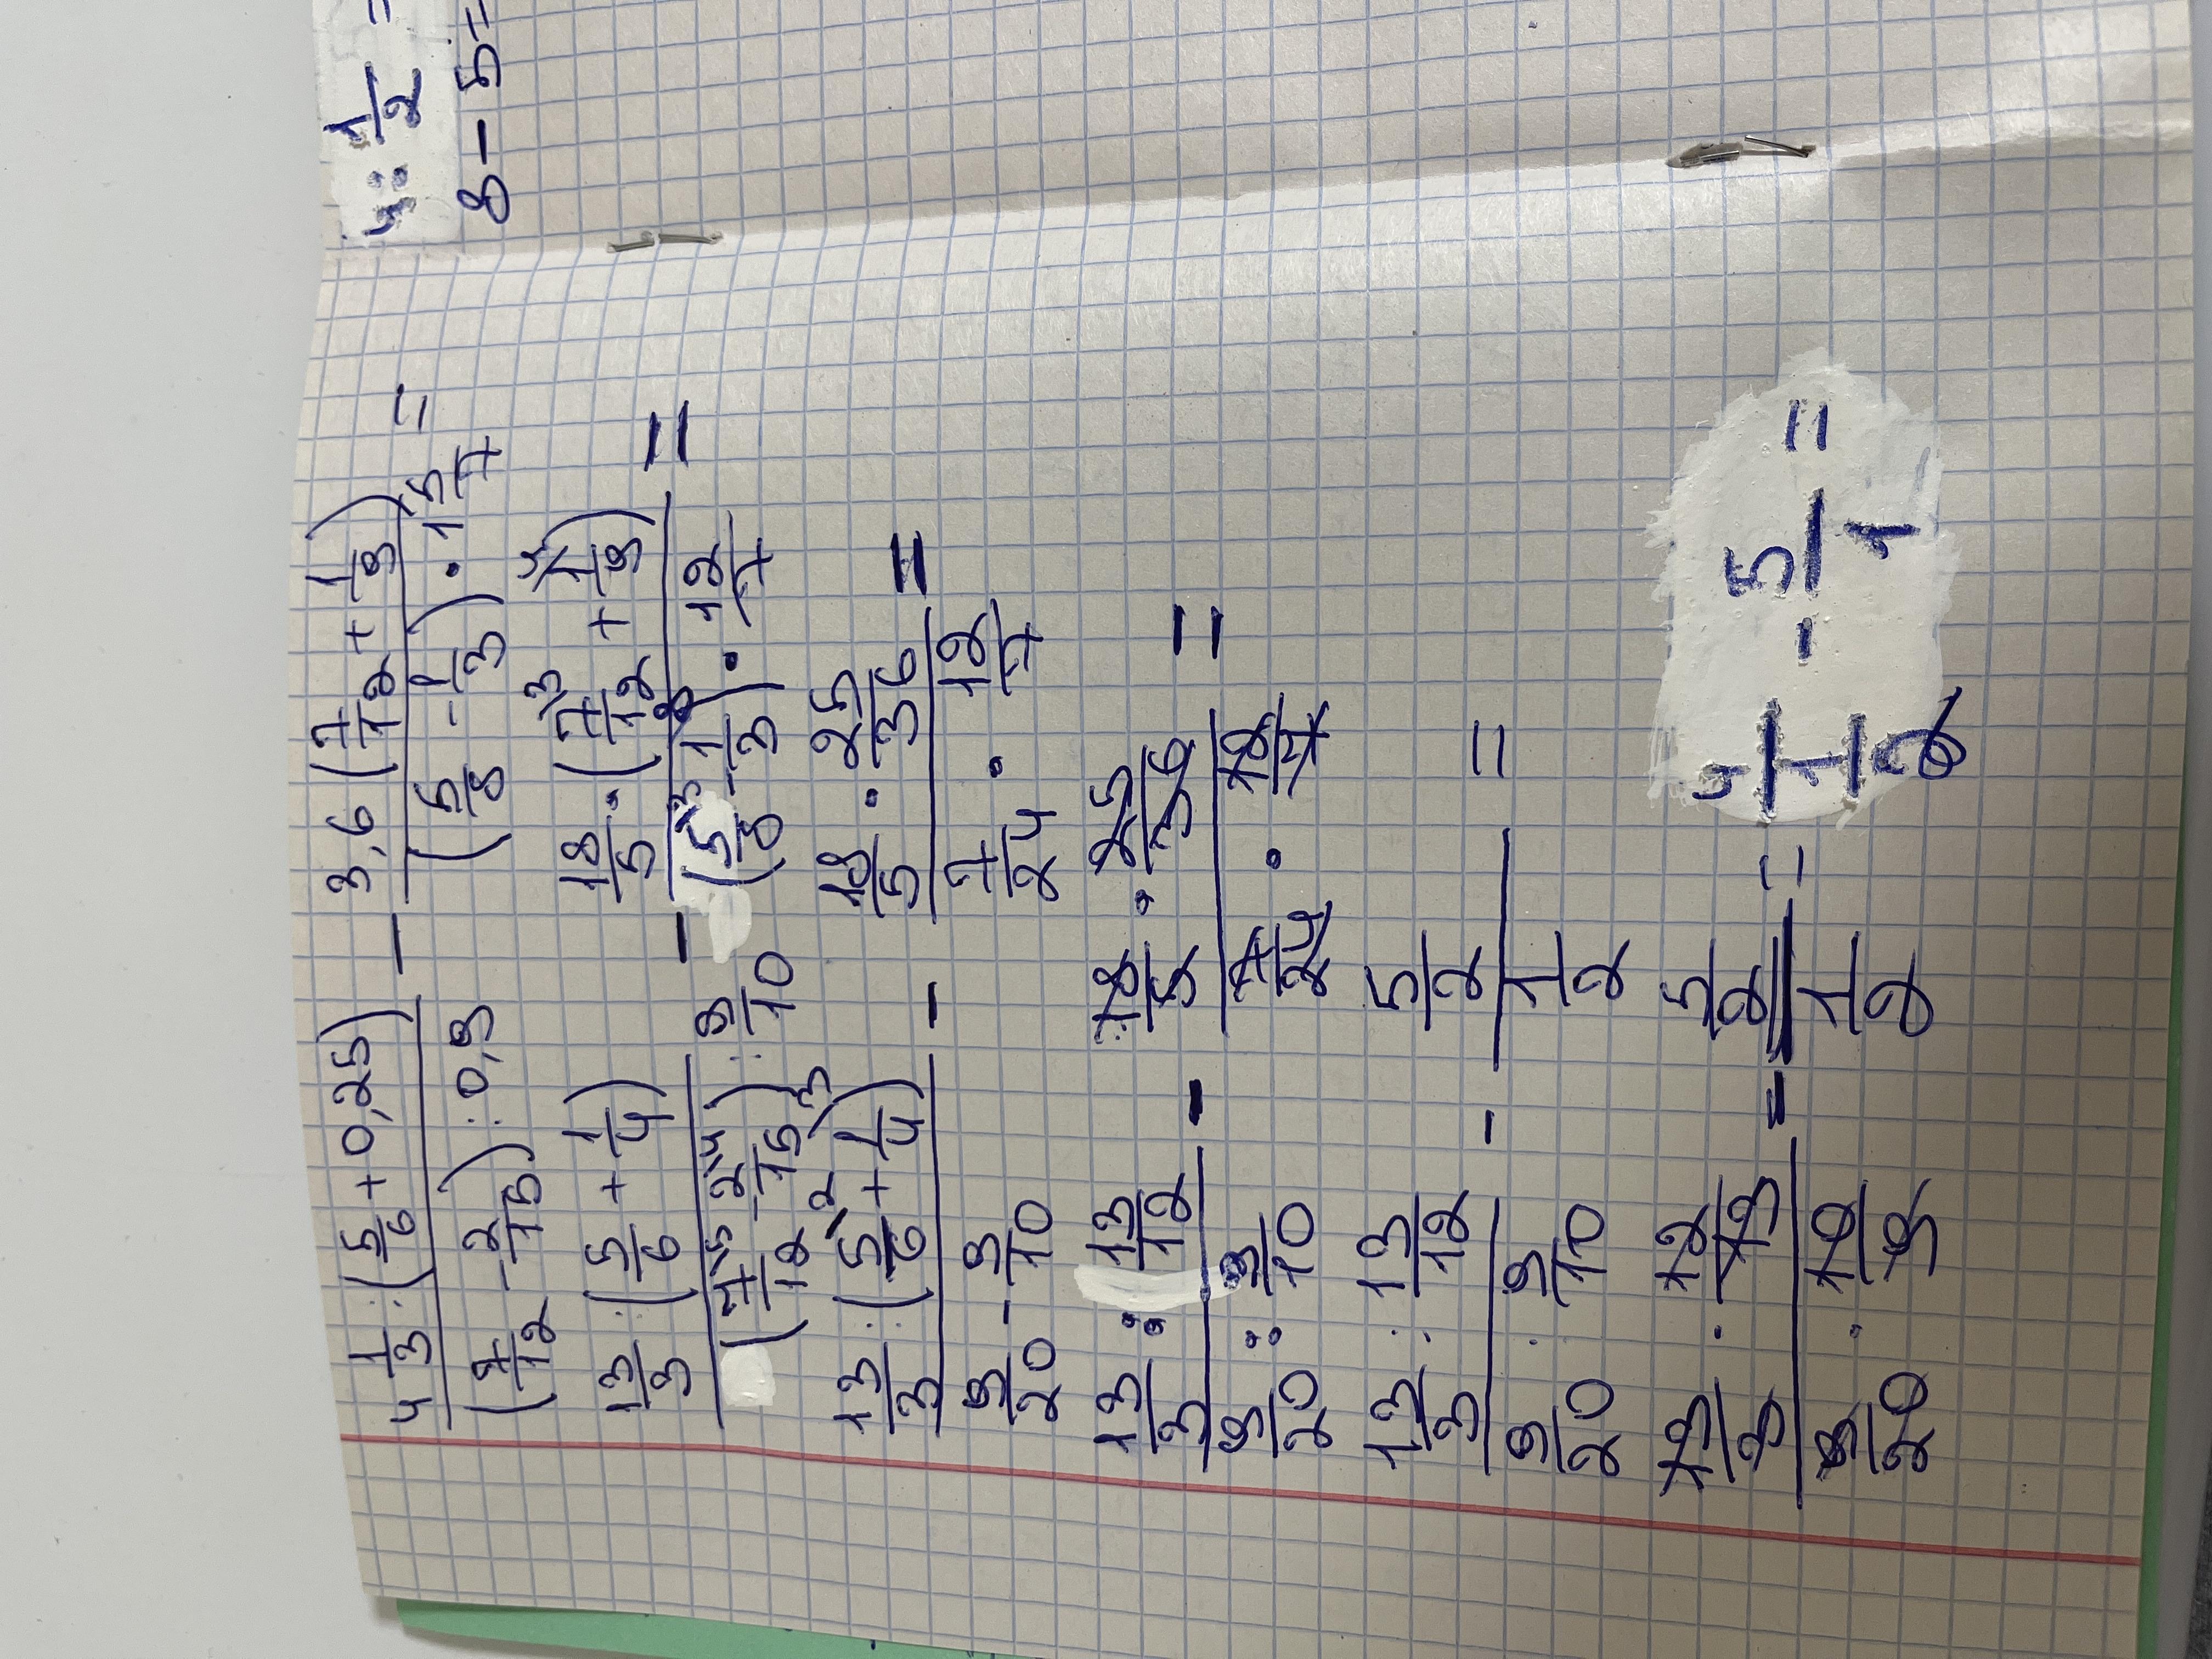 4 1/3 : (5/6 + 0,25) / (7/12 - 2/15) : 0,9 - 3,6 (7/12 + 1/9) / (5/8 - 1/3) · 15/7 =
13/3 : (5/6 + 1/4) / (7/12 \5 - 2/15 \4) : 9/10 - 18/5 · (7/12 \3 + 1/9 \4) / (5/8 \3 - 1/3 \8) · 12/7 =
13/3 : (5/6 \2 + 1/4 \3) / 9/20 - 9/10 - 18/5 · 25/36 / 7/24 · 12/7 =
13/3 : 13/12 / 9/20 : 9/10 - 18/5 · 25/36 / 7/24 · 12/7 =
13/3 : 13/12 / 9/20 : 9/10 - 5/2 / 1/2 =
13/3 · 12/13 / 9/20 · 10/9 - 5/2 / 1/2 = 4 / 1/2 - 5/1 =
4 : 1/2 =
8 - 5 =